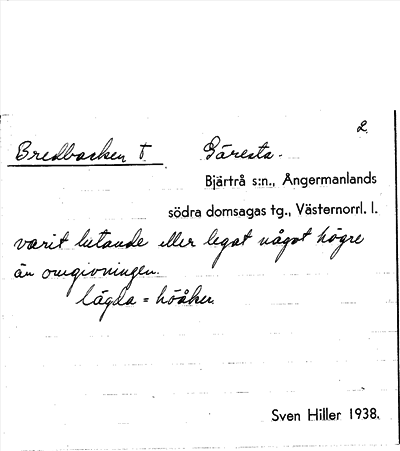 2.
Bredbacken t. Gäresta.
Bjärtrå s:n., Ångermanlands
södra domsagas tg., Västernorrl. l.
varit lutande eller legat något högre
än omgivningen.
lägda = höåker.
Sven Hiller 1938.